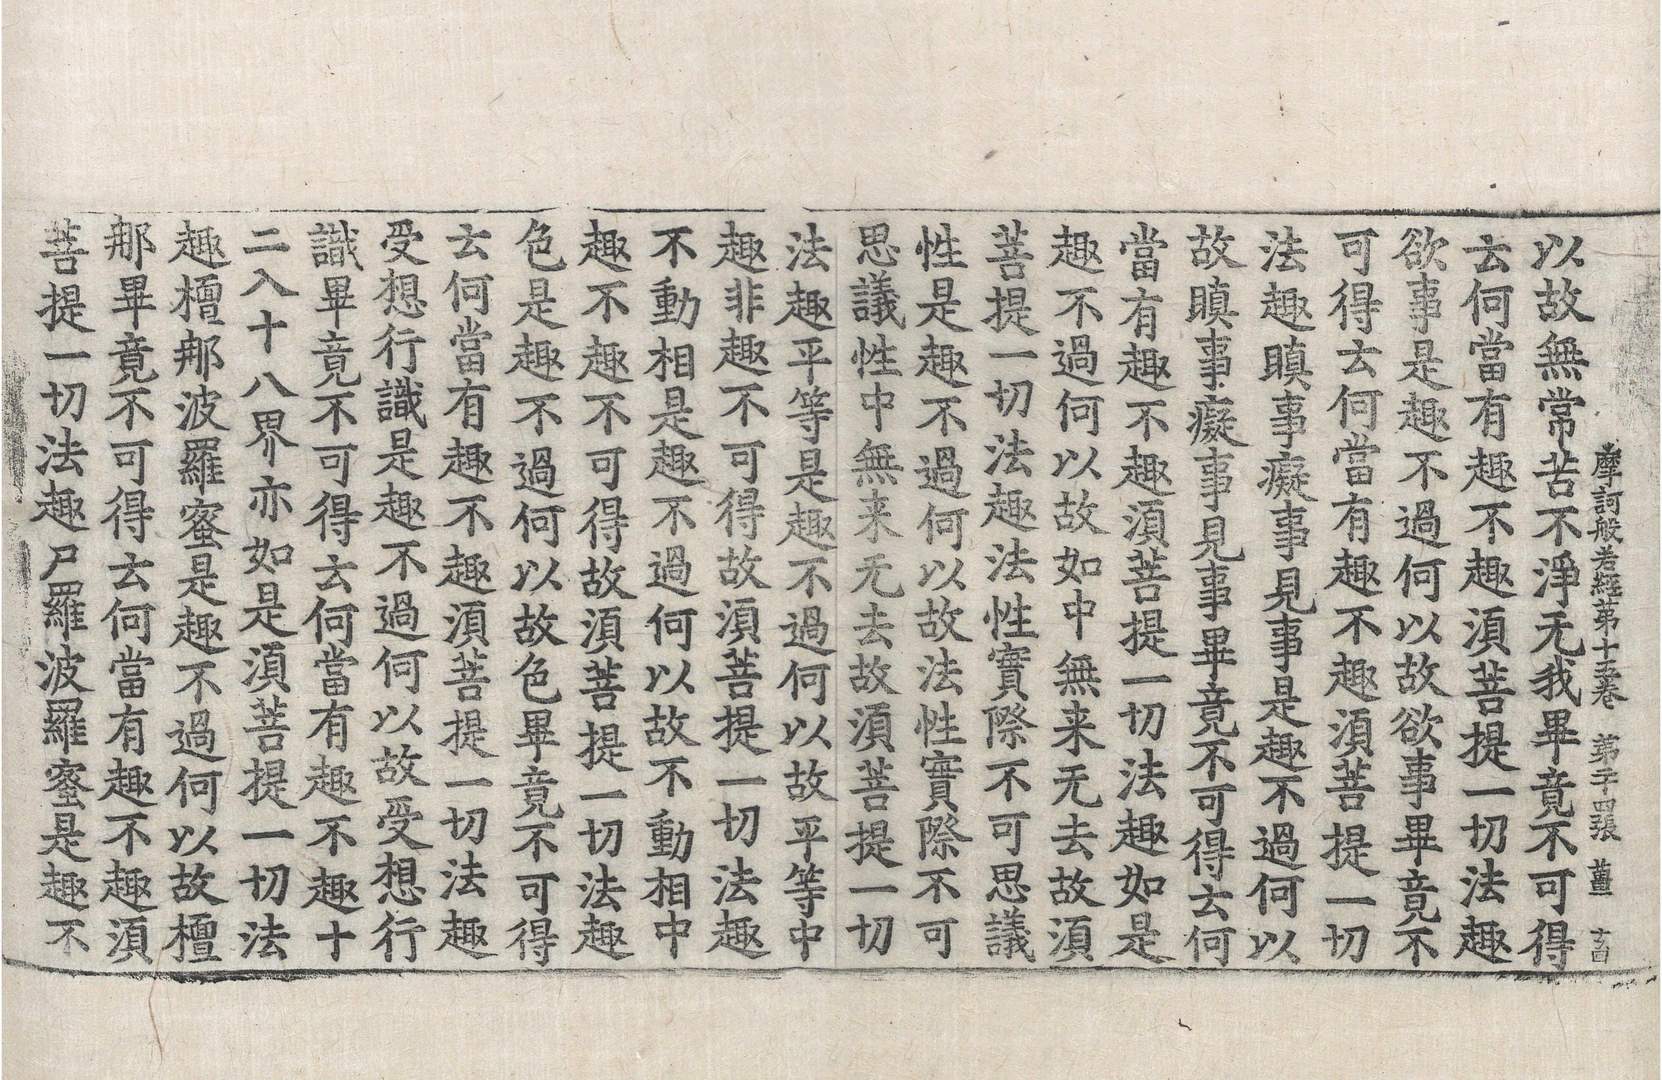 摩訶般若經第十五卷　第二十四張　薑　玄萬
以故無常苦不淨无我畢竟不可得
云何當有趣不趣湏菩提一切法趣
欲事是趣不過何以故欲事畢竟不
可得云何當有趣不趣湏菩提一切
法趣瞋事癡事見事是趣不過何以
故瞋事癡事見事畢竟不可得云何
當有趣不趣湏菩提一切法趣如是
趣不過何以故如中無来无去故湏
菩提一切法趣法性實際不可思議
性是趣不過何以故法性實際不可
思議性中無来无去故湏菩提一切
法趣平等是趣不過何以故平等中
趣非趣不可得故湏菩提一切法趣
不動相是趣不過何以故不動相中
趣不趣不可得故湏菩提一切法趣
色是趣不過何以故色畢竟不可得
云何當有趣不趣湏菩提一切法趣
受想行識是趣不過何以故受想行
識畢竟不可得云何當有趣不趣十
二入十八界亦如是湏菩提一切法
趣檀那波羅蜜是趣不過何以故檀
那畢竟不可得云何當有趣不趣湏
菩提一切法趣尸羅波羅蜜是趣不